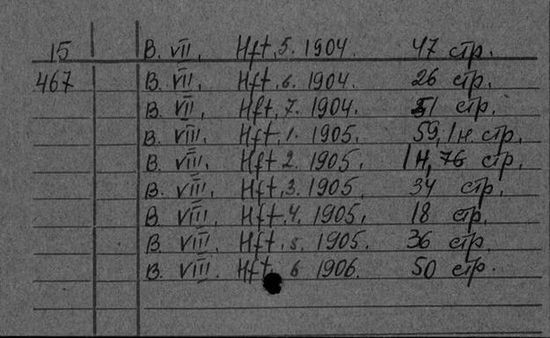 15 B. VII. Hft. 5. 1904. 47 стр.
467 B. VII. Hft. 6. 1904. 26 стр.
B. VII. Hft. 7. 1904. 51 стр.
B. VIII. Hft. 1. 1905. 59, 1 н. стр.
B. VIII. Hft. 2. 1905. 1 н, 76 стр.
B. VIII. Hft. 3. 1905. 34 стр.
B. VIII. Hft. 4. 1905. 18 стр.
B. VIII. Hft. 5. 1905. 36 стр.
B. VIII. Hft. 6 1906. 50 стр.